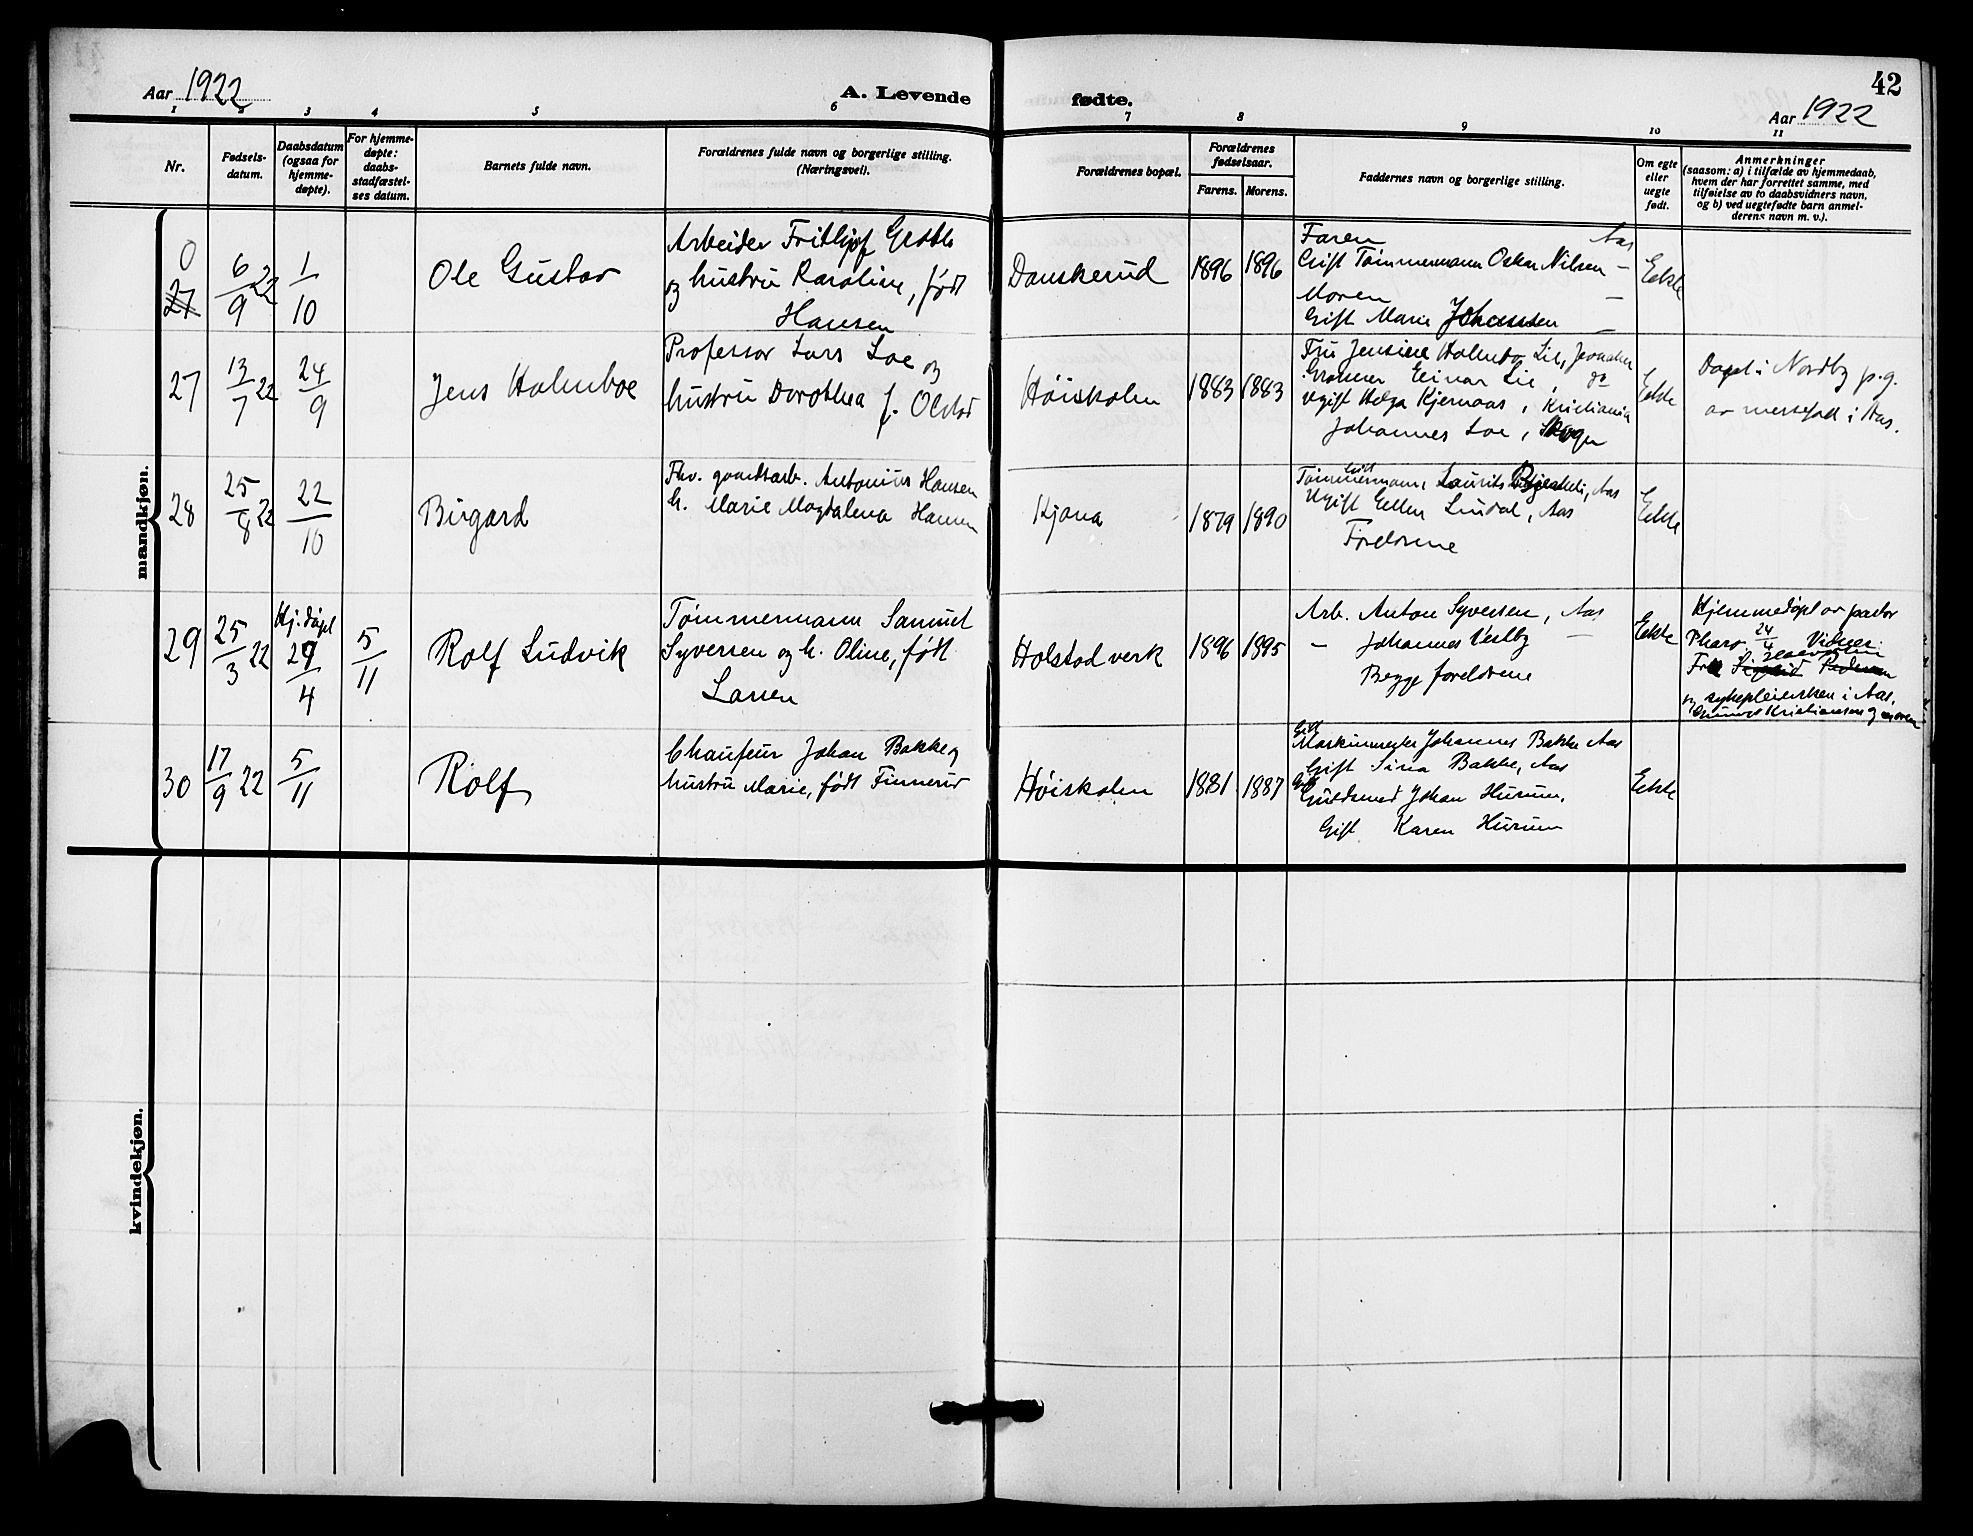 42
Aar 1922
A. Levende
fødte.
Aar 1922
1 2 3 4 5 6 7 8 9 10 11
Nr.
Fødsels-
datum.
Daabsdatum
(ogsaa for
hjemme-
døpte).
For hjemme-
døpte:
daabs-
stadfæstel-
ses datum.
Barnets fulde navn.
Forældrenes fulde navn og borgerlige stilling.
(Næringsvei).
Forældrenes bopæl.
Forældrenes
fødselsaar.
Farens. Morens.
Faddernes navn og borgerlige stilling.
Om egte
eller
uegte
født.
Anmerkninger
(saasom: a) i tilfælde av hjemmedaab,
hvem der har forrettet samme, med
tilføielse av to daabsvidners navn,
og b) ved uegtefødte barn anmel-
derens navn m. v.).
mandkjøn.
0
27
6/9 22
1/10
Ole Gustav
Arbeider Frithjof
og hustru Karoline, født
Hansen
Danskerud
1896 1896
Faren Aas
Gift Tømmermann Oskar Nilsen —
Moren —
Gift Marie Johansen —
Ekte
27
13/7 22
24/9
Jens Holmboe
Professor Lars Loe og
hustru Dorothea f. Olstad
Høiskolen
1883 1883
Fru Jensine Holmboe Lie,
Einar Lie, do
Ugift Helga Kjernaas, Kristiania
Johannes Loe,
Ekte
Døpt i Nordby p.g.
av messefall i Aas.
28
25/8 22
22/10
Birgard
Fhv. gaardsarb. Antonius Hansen
h. Marie Magdalena Hansen
Kjøna
1879 1890
Gift
Tømmermann, Laurits Aas
Ugift Ellen Lindal, Aas
Foreldrene
Ekte
29
25/3 22
Hj. døpt
29/4
5/11
Rolf Ludvik
Tømmermann Samuel
Syversen og h. Oline, født
Larsen
Holstad verk
1896 1895
Arb. Anton Syversen, Aas
— Johannes Vestby —
Begge foreldrene
Ekte
Hjemmedøpt av pastor
Pharo 24/4 Vidner:
Sigrid Pedersen
og sykepleiersken i Aas,
Kristiansen og moren
30
17/9 22
5/11
Rolf
Chaufeur Johan Bakke og
hustru Marie, født Finnerud
Høiskolen
1881 1887
Gift
Maskinmester Johannes Bakke Aas
Gift Sina Bakke, Aas
Gift
Guldsmed Johan Hurum.
Gift Karen Hurum
Ekte
kvindekjøn.